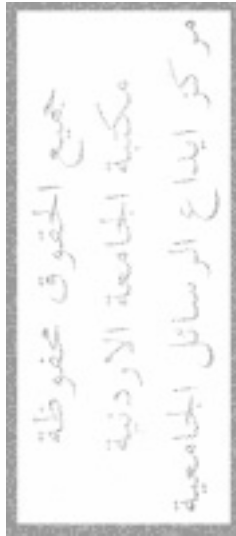 جميع الحقوق محفوظة
مكتبة الجامعة الاردنية
مركز ايداع الرسائل الجامعية